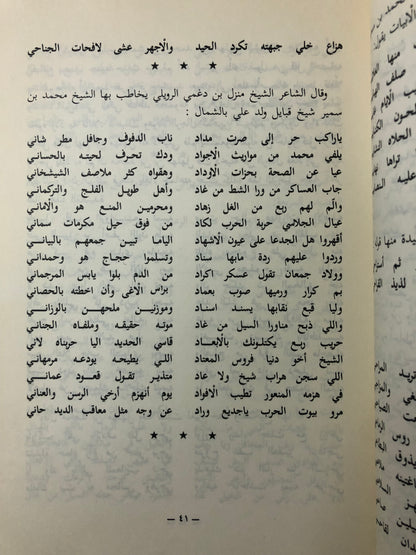 هزاع خلي جبهته تكرد الحيد والأجهر عشى لافحات الجناحي
★ ★ ★
وقال الشاعر الشيخ منزل بن دغمي الرويلي يخاطب بها الشيخ محمد بن
سمير شيخ قبايل ولد علي بالشمال :
ياراكب حر إلى صرت مداد ناب الدفوف وجافل مطر شاني
يلفي محمد من مواريث الأجواد ودك تحرف لحيته بالحساني
عيا عن الصحة بحزات الأوداد وهقواه كثر ملاصف الشيشخاني
جاب العساكر من ورا الشط من غاد وأهل طويل الفلج والتركماني
والم لهم ربع من الغل زهاد ومحرمين المنع هو والأماني
عيال الجلاسي حرية الحرب لكاد من فوق حيل مكرمات سماني
أقهروا هل الجدعا على عيون الأشهاد الياما تبين جمعهم بالبياني
وردوا عليهم ردة مابها سناد وتسلموا حجاج هو وحمداني
وولاد جمعان تقول عسكر أكراد من الدم بلوا يابس المرجماني
بم كرار ورميها صوب بعماد براس الأغى وأن اخطته بالحصاني
وليا قيع نقابها يسند اسناد وموزنين ملحهن بالوزاني
واللي ذبح مناورا السيل من غاد موته حقيقه وملفاه الجناني
حريب ربع يكتلونك بالأبعاد قاسي الحديد اليا حربناه لاني
الشيخ أخو دنيا فروس المعتاد اللي يطيحه يودعه مرمهاني
اللي سجن هراب شيخ ولا عاد متدير تقول قعود عماني
في هزمه المنعور تطيب الأفواد يوم أنهزم أرخى الرسن والعناني
مرو بيوت الحرب ياجديع وراد عن وجه مثل معاقب الديد حاني
★ ★ ★
— ٤١ —